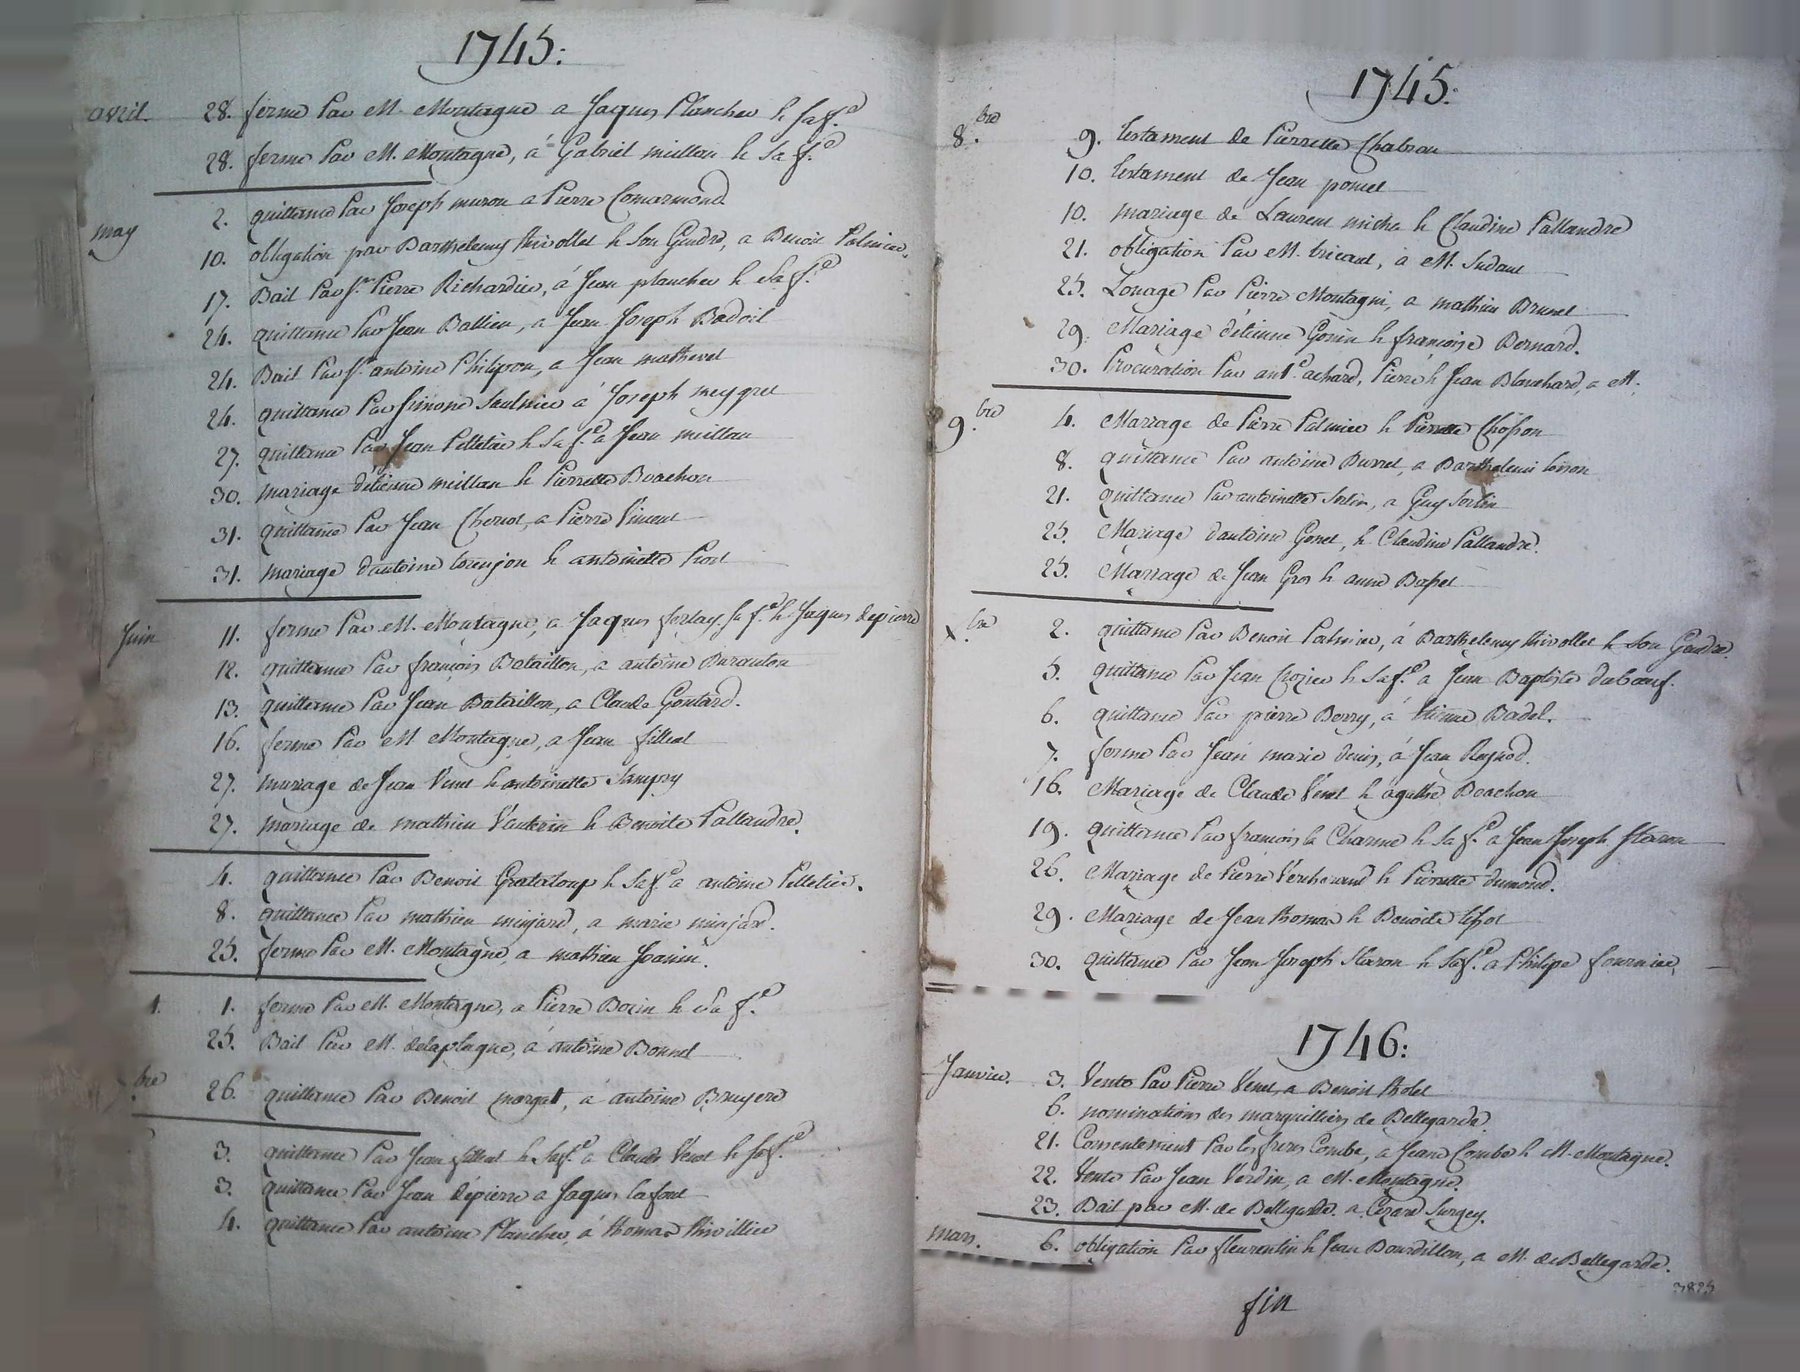 1745:
avril. 28. ferme Par M. Montagne a Jaques Plancher & sa f.e
28. ferme Par M. Montagne, á Gabriel millon & sa f.e
may 2. quittance Par Joseph muron a Pierre Comarmond
10. obligation par Barthelemy thivollet & son Gendre, a Benoit Palmier.
17. Bail Par s.r Pierre Richardier, á Jean plancher & sa f.e
24. quittance Par Jean Ballieu, a Jean Joseph Badoil
24. Bail Par s.r antoine Philipon, a Jean mathevet
24. quittance Par simone Saulnier á Joseph meygret
27. quittance Par Jean Pelletier & sa f.e a Jean millan
30. mariage d'étienne meillan & Pierrette Boachon
31. quittance Par Jean Cheriot, a Pierre Vincent
31. mariage d'antoine & antoinette
Juin 11. ferme Par M. Montagne, a Jaques forlay, sa f.e & Jaques depierre
12. quittance Par françois Bataillon, a antoine Duranton
13. quittance Par Jean Bataillon, a Claude Goutard.
16. ferme Par M Montagne, a Jean filliat
27. mariage de Jean Venet & antoinette
27. mariage de mathieu Vauterin & Benoite Pallandre.
4. quittance Par Benoit Grataloup & sa f.e a antoine Pelletier.
8. quittance Par mathieu minjard, a marie minjard.
25. ferme Par M. Montagne, a mathieu Joanin.
1. ferme Par M. Montagne, a Pierre Boin & sa f.e
25. Bail Par M. delaplagne, á antoine Bonnet
bre 26. quittance Par Benoit morgat, a antoine Bruyere
3. quittance Par Jean filliat & sa f.e a Claude Venet & sa f.e
3. quittance Par Jean dépierre a Jaques lafont
4. quittance Par antoine Plancher, á thomas thivillier
1745:
8.bre 9. testament de Pierrette Chabran
10. testament de Jean poncet
10. mariage de Laurent & Claudine Pallandre
21. obligation Par M. bricaut, a M. Sudaut
25. Louage Par Pierre Montagni, a mathieu Brunel
29. Mariage d'étienne Gonin & françoise Bernard.
30. Procuration Par ant.e achard, Pierre & Jean Blanchard, a M.
9.bre 4. Mariage de Pierre Palmier & Pierrette Chosson
8. quittance Par antoine Burret, a Barthelemi
21. quittance Par antoinette Sorlin, a Guy Sorlin
25. Mariage d'antoine Gonet, & Claudine Pallandre.
25. Mariage de Jean Gros & anne Basset
x.bre 2. quittance Par Benoit Palmier, á Barthelemy thivollet & son Gendre.
5. quittance Par Jean Crozier & sa f.e a Jean Baptiste duboeuf.
6. quittance Par pierre Berry, á étienne Badel.
7. ferme Par Jean marie denis, á Jean Raynod.
16. Mariage de Claude Venet & agathe Boachon
19. quittance Par françois la Charme & sa f.e a Jean Joseph Staron
26. Mariage de Pierre Vercherand & Pierrette dumond.
29. Mariage de Jean thomas & Benoite
30. quittance Par Jean Joseph Staron & sa f.e a Philipe fournier.
1746:
Janvier. 3. Vente Par Pierre Venet, a Benoit tholet
6. nominations des marguilliers de Bellegarde.
21. Consentement Par les freres Combe, a Jean Combe & M. Montagne.
22. Vente Par Jean Verdin, a M. Montagne.
23. Bail par M. de Bellegarde. a Cezard Surgey.
mars. 6. obligation Par fleurentin & Jean Bourdillon, a M. de Bellegarde.
fin